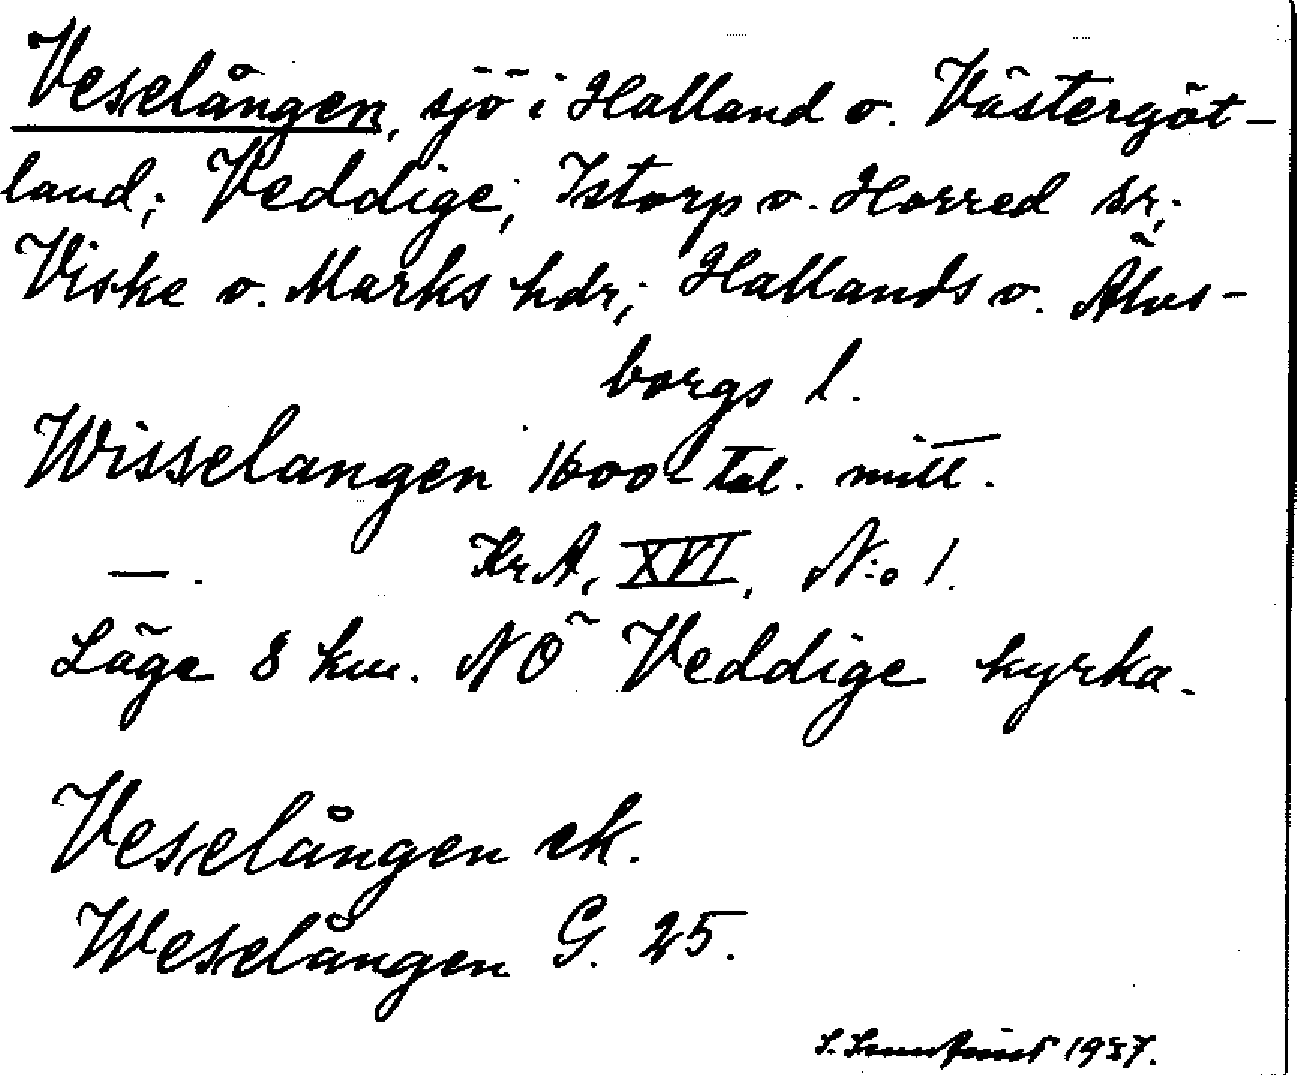 Veselången, sjö i Halland o. Västergöt-
land; Veddige, Istorp o. Horred sr;
Viske o. Marks hdr; Hallands o. Älvs-
borgs l.
Wisselangen 1600-tal. mitt.
—. KrA, XVI, N:o 1.
Läge 8 km. NÖ Veddige kyrka.
Veselången ek.
Weselången G. 25.
S. 1937.